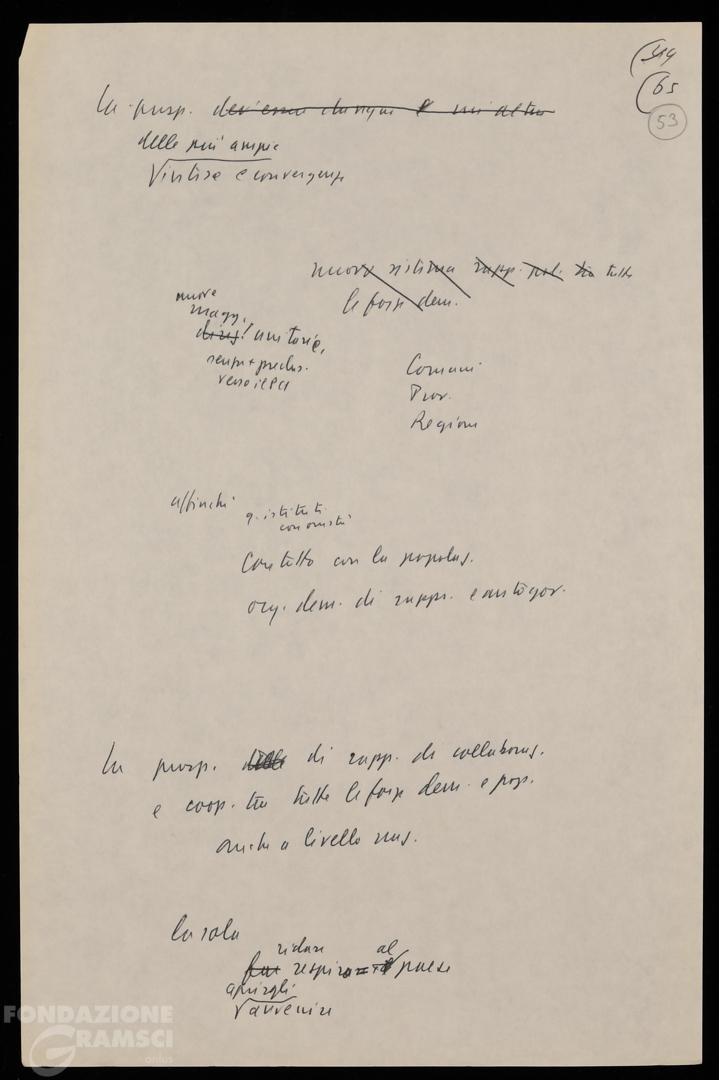 (65
53
La prosp. dev'essere dunque è un'altra
delle più ampie
intese e convergenze
nuovo sistema rapp. pol. tra tutte
le forze dem.
nuove
magg.
unitarie,
senza + preclus.
verso il PCI
Comuni
Prov.
Regioni
affinché q. istituti
con onestà
Contatto con la popolaz.
org. dem. di rapp. e autogov.
La prosp. delle di rapp. di collaboraz.
e coop. tra tutte le forze dem. e pop.
anche a livello naz.
la sola
ridare al
far respiro paese
aprirgli
l'avvenire
FONDAZIONE
GRAMSCI
onlus